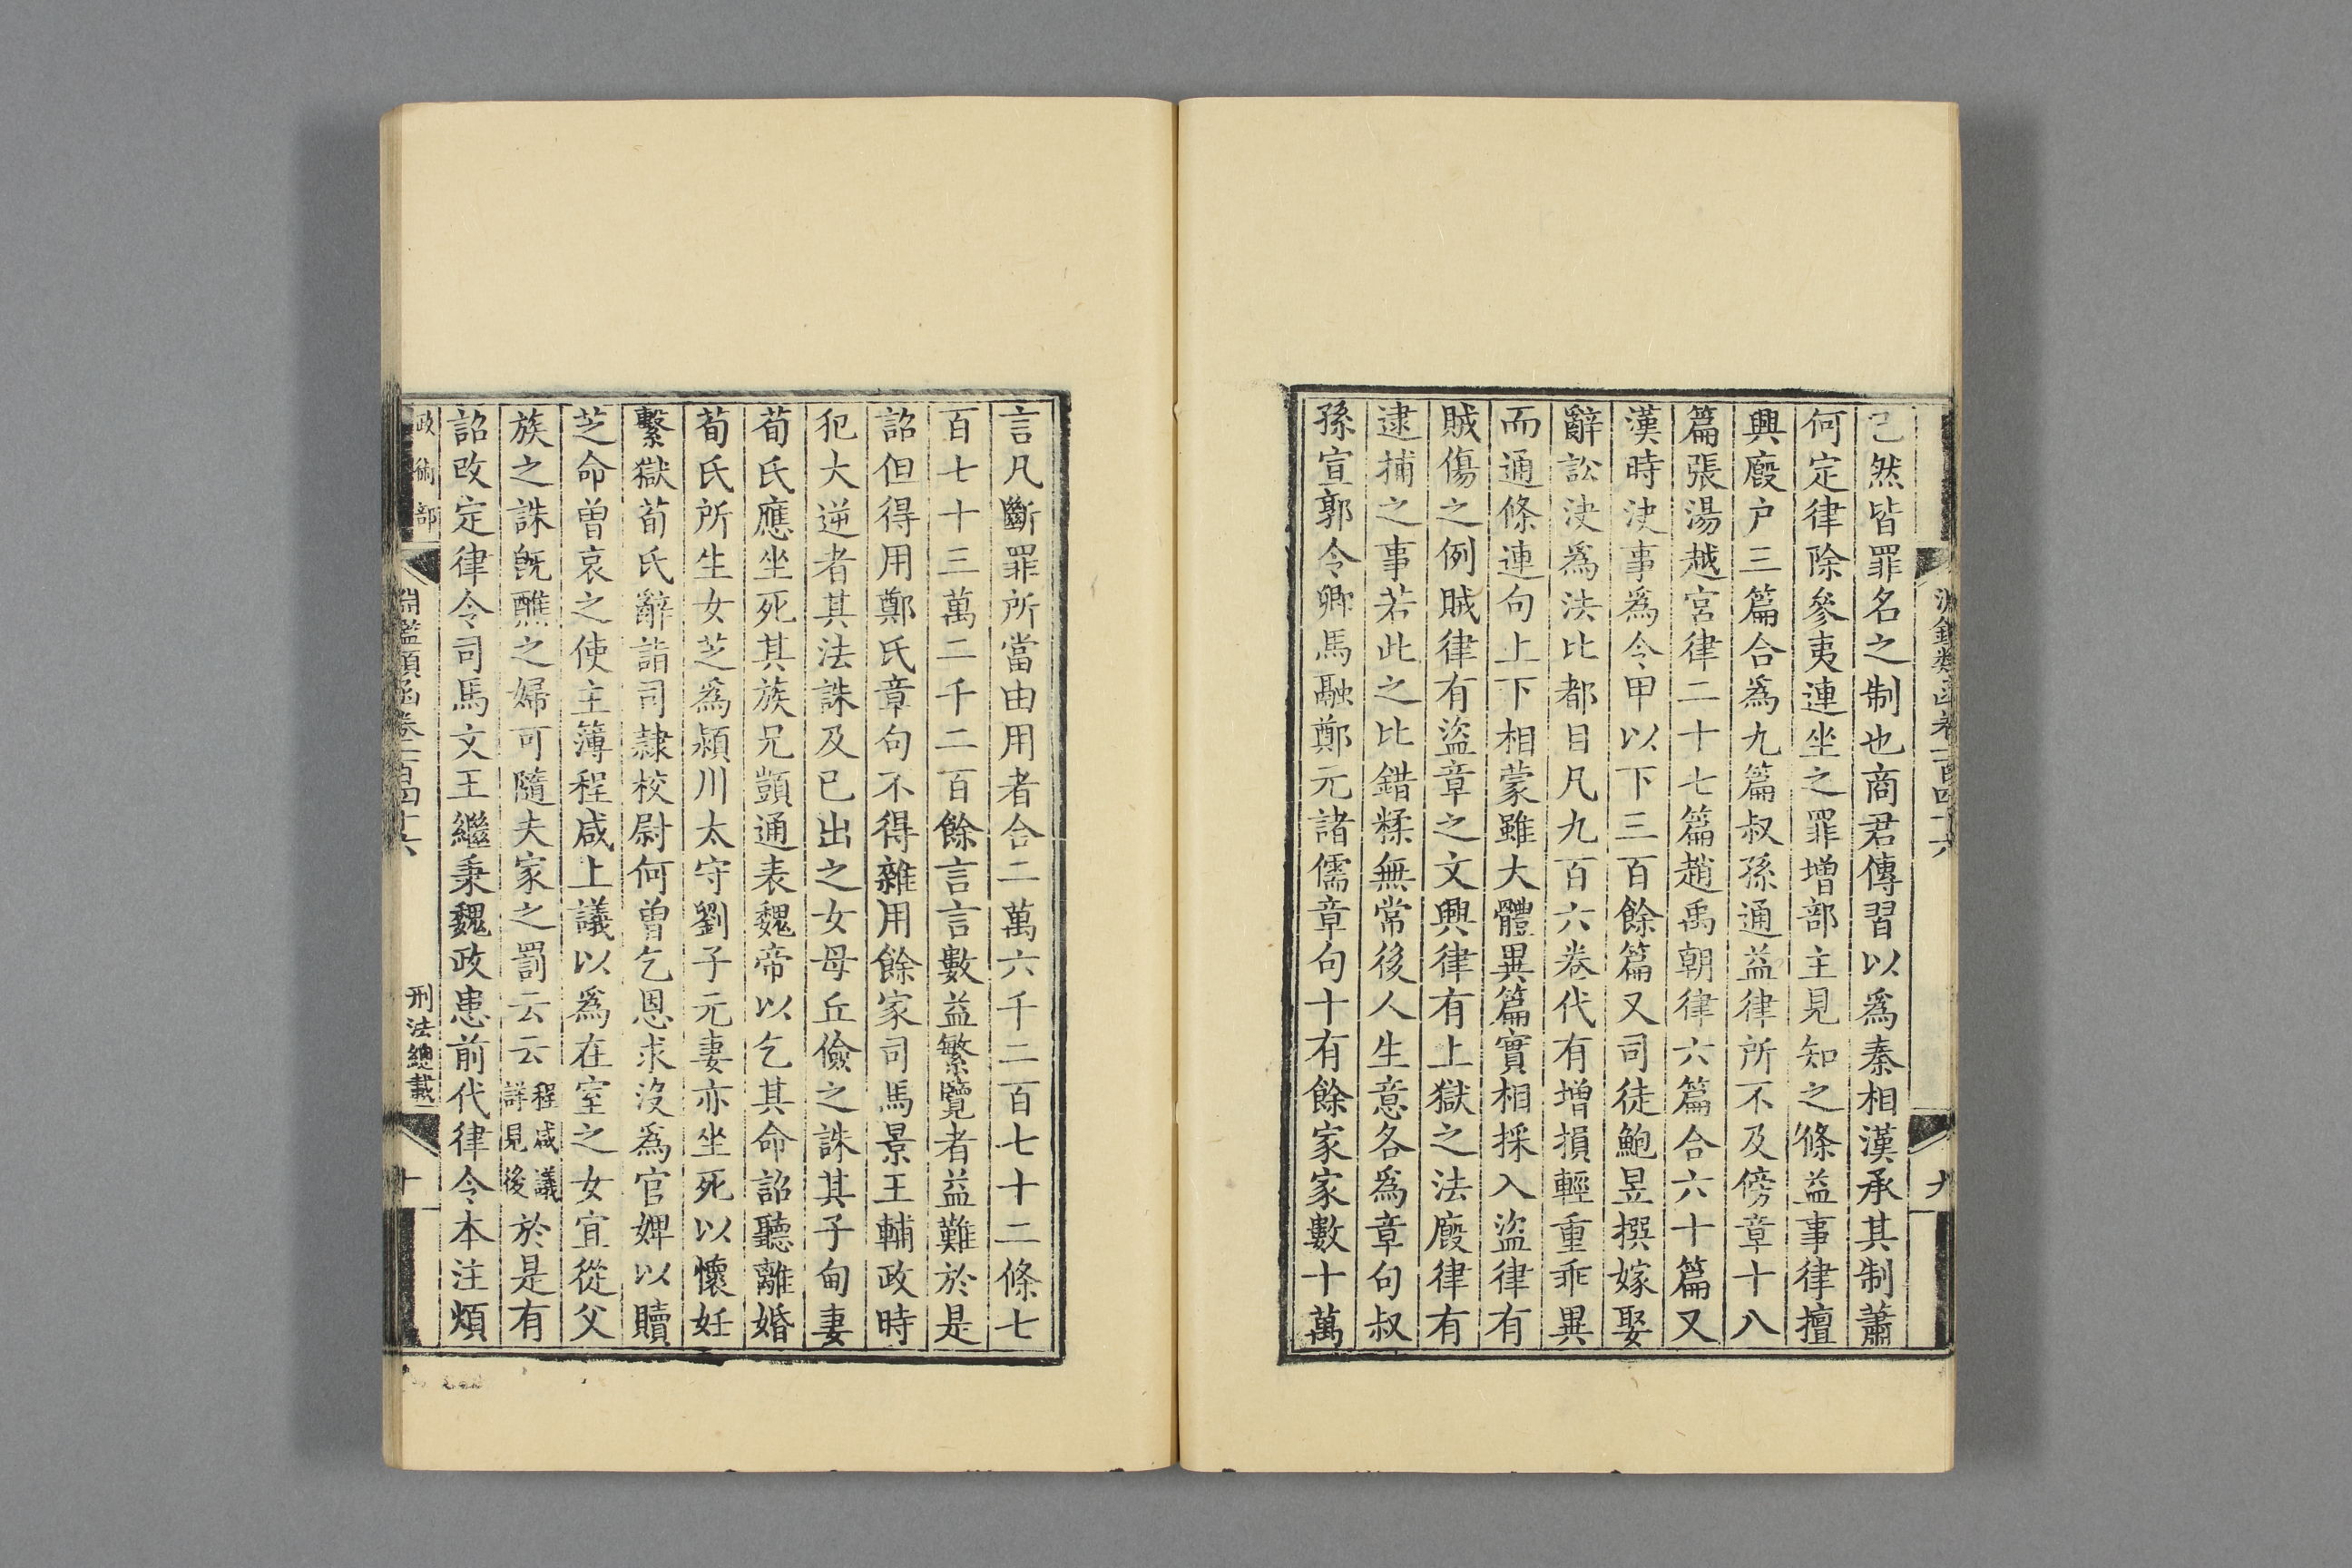 淵鑑類函卷二百四十六
九
已然皆罪名之制也商君傳習以爲秦相漢承其制蕭
何定律除參夷連坐之罪增部主見知之條益事律擅
興廄户三篇合爲九篇叔孫通益律所不及傍章十八
篇張湯越宮律二十七篇趙禹朝律六篇合六十篇又
漢時决事爲令甲以下三百餘篇又司徒鮑昱撰嫁娶
辭訟决爲法比都目凡九百六卷代有增損輕重乖異
而通條連句上下相蒙雖大體異篇實相採入盜律有
賊傷之例賊律有盜章之文興律有上獄之法廄律有
逮捕之事若此之比錯糅無常後人生意各爲章句叔
孫宣郭令卿馬融鄭元諸儒章句十有餘家家數十萬
言凡斷罪所當由用者合二萬六千二百七十二條七
百七十三萬二千二百餘言言數益繁覽者益難於是
詔但得用鄭氏章句不得雜用餘家司馬景王輔政時
犯大逆者其法誅及已出之女母丘儉之誅其子甸妻
荀氏應坐死其族兄顗通表魏帝以乞其命詔聽離婚
荀氏所生女芝爲潁川太守劉子元妻亦坐死以懷妊
繫獄荀氏辭詣司隷校尉何曾乞恩求沒爲官婢以贖
芝命曾哀之使主簿程咸上議以爲在室之女宜從父
族之誅旣醮之婦可隨夫家之罰云云程咸議詳見後於是有
詔改定律令司馬文王繼秉魏政患前代律令本注煩
政術部
淵鑑類函卷二百四十六
刑法總載
十